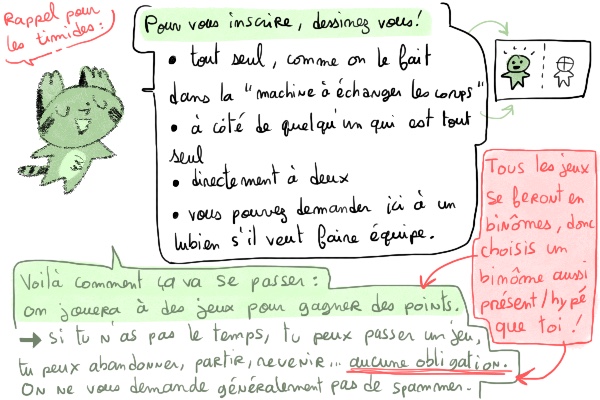 Rappel pour
les timides :
Pour vous inscrire, dessinez vous !
• tout seul, comme on le fait
dans la "machine à échanger les corps"
• à côté de quelqu'un qui est tout
seul
• directement à deux
• vous pouvez demander ici à un
lubien s'il veut faire équipe.
Tous les jeux
se feront en
binômes, donc
choisis un
binôme aussi
présent/hypé
que toi !
Voilà comment ça va se passer :
on jouera à des jeux pour gagner des points.
→ si tu n'as pas le temps, tu peux passer un jeu,
tu peux abandonner, partir, revenir... aucune obligation.
On ne vous demande généralement pas de spammer.